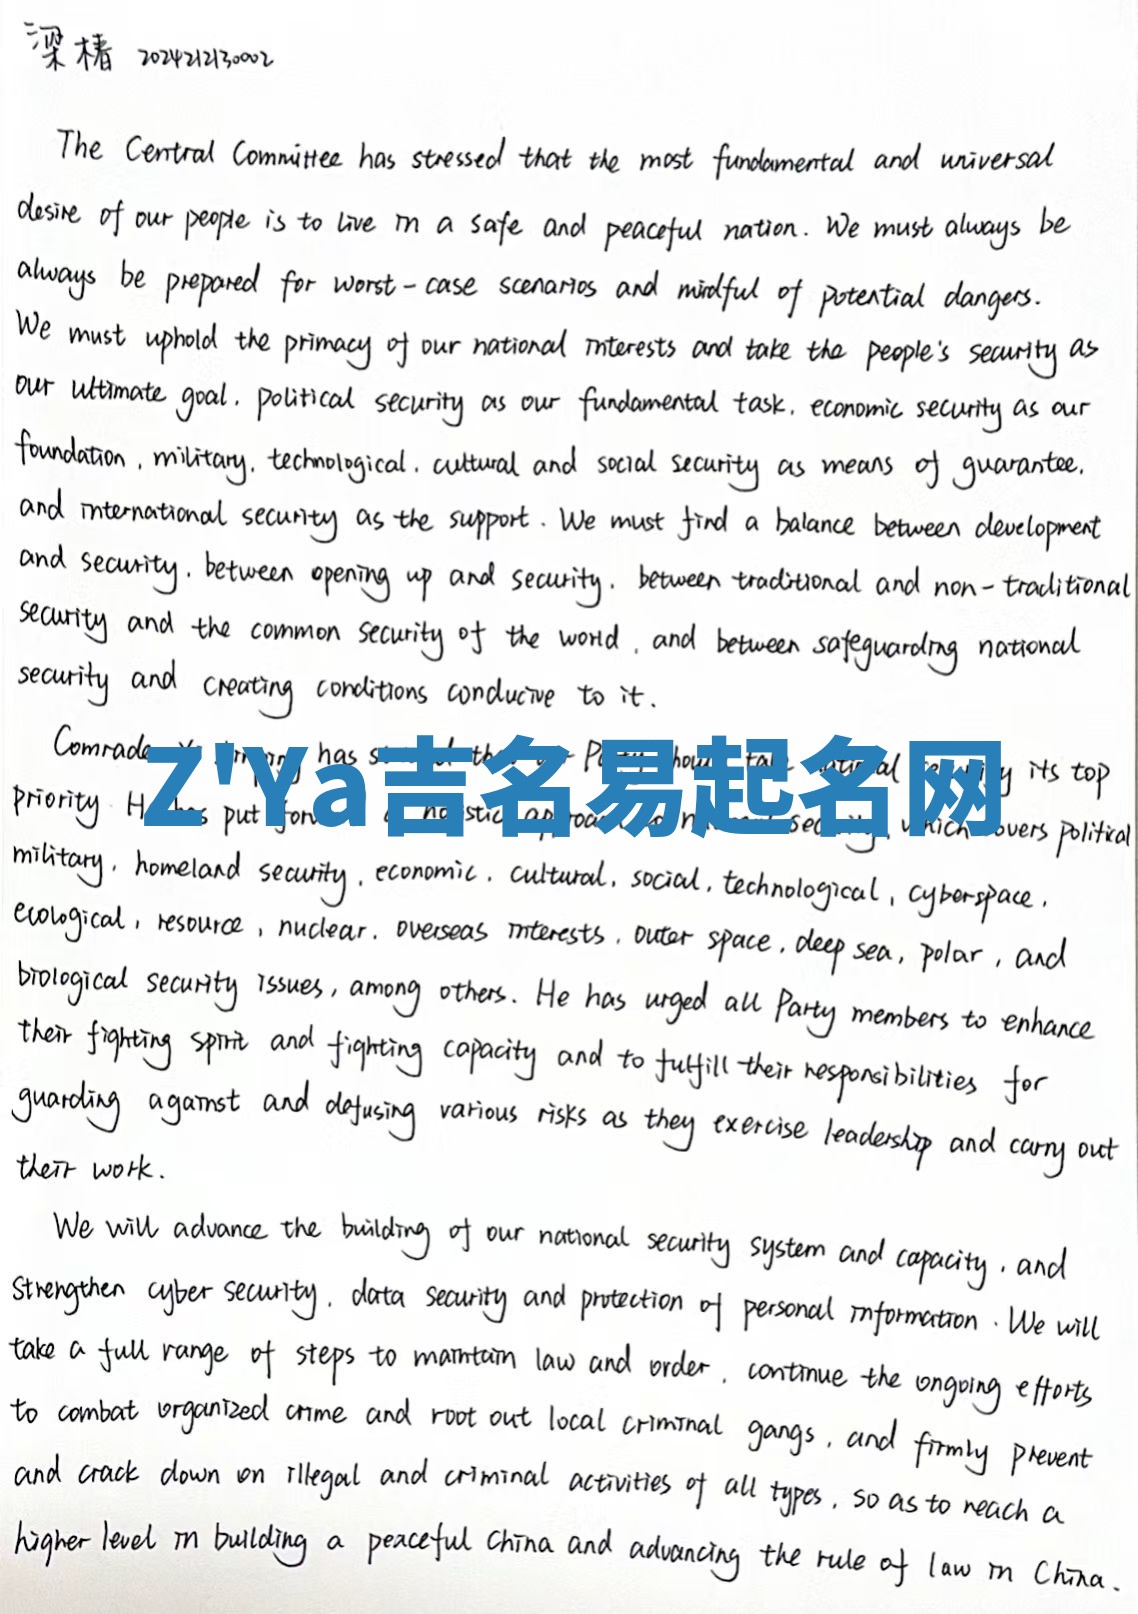 梁椿 2024212130002
The Central Committee has stressed that the most fundamental and universal
desire of our people is to live in a safe and peaceful nation. We must always be
always be prepared for worst-case scenarios and mindful of potential dangers.
We must uphold the primacy of our national interests and take the people's security as
our ultimate goal, political security as our fundamental task, economic security as our
foundation, military, technological, cultural and social security as means of guarantee,
and international security as the support. We must find a balance between development
and security, between opening up and security, between traditional and non-traditional
security and the common security of the world, and between safeguarding national
security and creating conditions conducive to it.
Comrade has Party national its top
Z'Ya吉名易起名网
priority He has put security, which covers political
military, homeland security, economic, cultural, social, technological, cyberspace,
ecological, resource, nuclear, overseas interests, outer space, deep sea, polar, and
biological security issues, among others. He has urged all Party members to enhance
their fighting spirit and fighting capacity and to fulfill their responsibilities for
guarding against and defusing various risks as they exercise leadership and carry out
their work.
We will advance the building of our national security system and capacity, and
strengthen cyber security, data security and protection of personal information. We will
take a full range of steps to maintain law and order, continue the ongoing efforts
to combat organized crime and root out local criminal gangs, and firmly prevent
and crack down on illegal and criminal activities of all types, so as to reach a
higher level in building a peaceful China and advancing the rule of law in China.